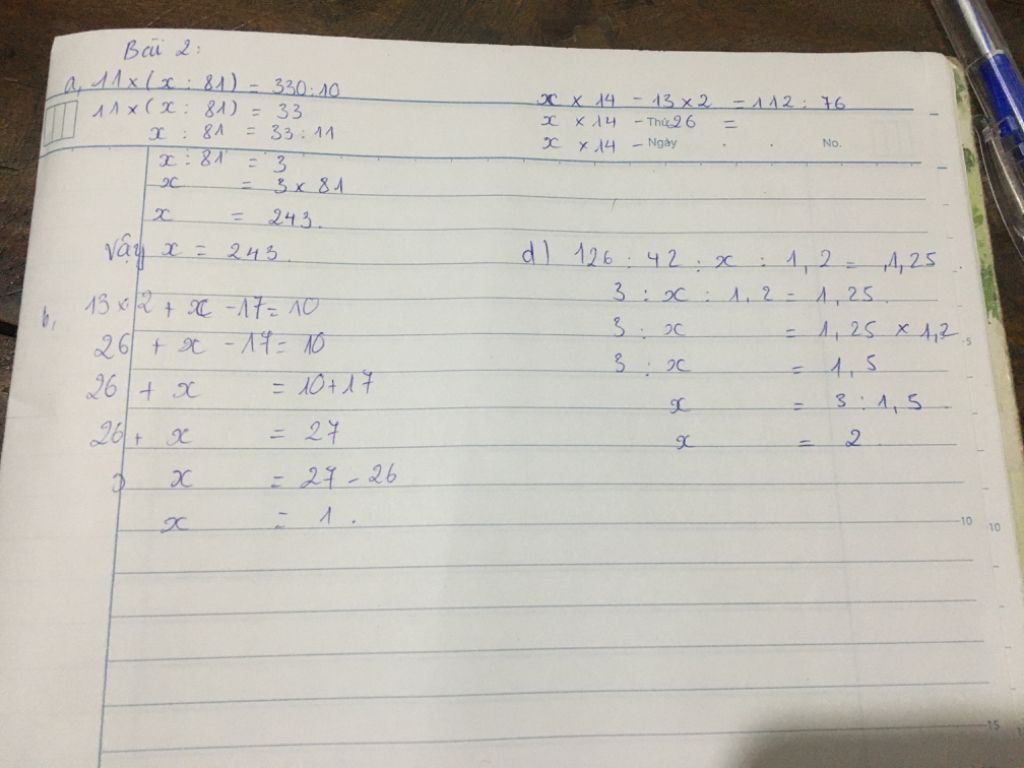 Bài 2:
a, 11 × (x : 81) = 330 : 10
11 × (x : 81) = 33
x : 81 = 33 : 11
x : 81 = 3
x = 3 × 81
x = 243.
Vậy x = 243.
b, 13 × 2 + x - 17 = 10
26 + x - 17 = 10
26 + x = 10 + 17
26 + x = 27
x = 27 - 26
x = 1.
x × 14 - 13 × 2 = 112 : 76
x × 14 - Thứ 26 =
x × 14 - Ngày . . No.
d) 126 : 42 : x : 1,2 = 1,25
3 : x : 1,2 = 1,25
3 : x = 1,25 × 1,2
3 : x = 1,5
x = 3 : 1,5
x = 2
5
10 10
15